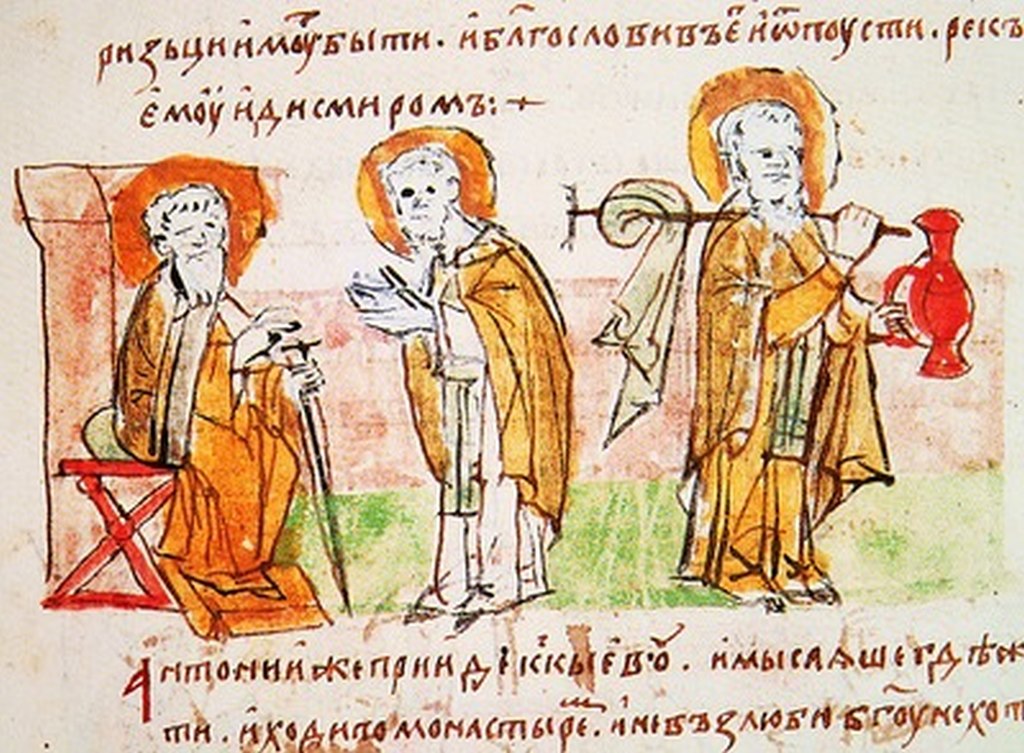 ризьци имꙋ быти. и бл҃гословивъ е҃ и ѿпоусти. рекъ
емоу иди смиромъ:+
Антонии же прииде къ кыевоу. и мысляше гдѣ ж
ти. и ходи по монастыре. и не възлюби б҃гоу не хот